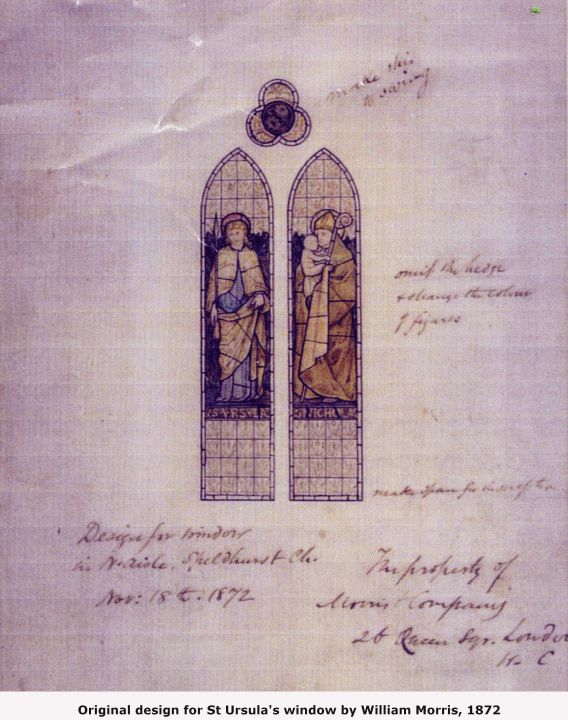 make this
to swing
omit the hedge
& change the colour
of figures
S VRSVLA
S NICHOLAS
make space for
Design for window
in N. aisle. Speldhurst Ch.
Nov: 18th. 1872
The property of
Morris & Company
26 Queen Sqr. London
W. C
Original design for St Ursula's window by William Morris, 1872